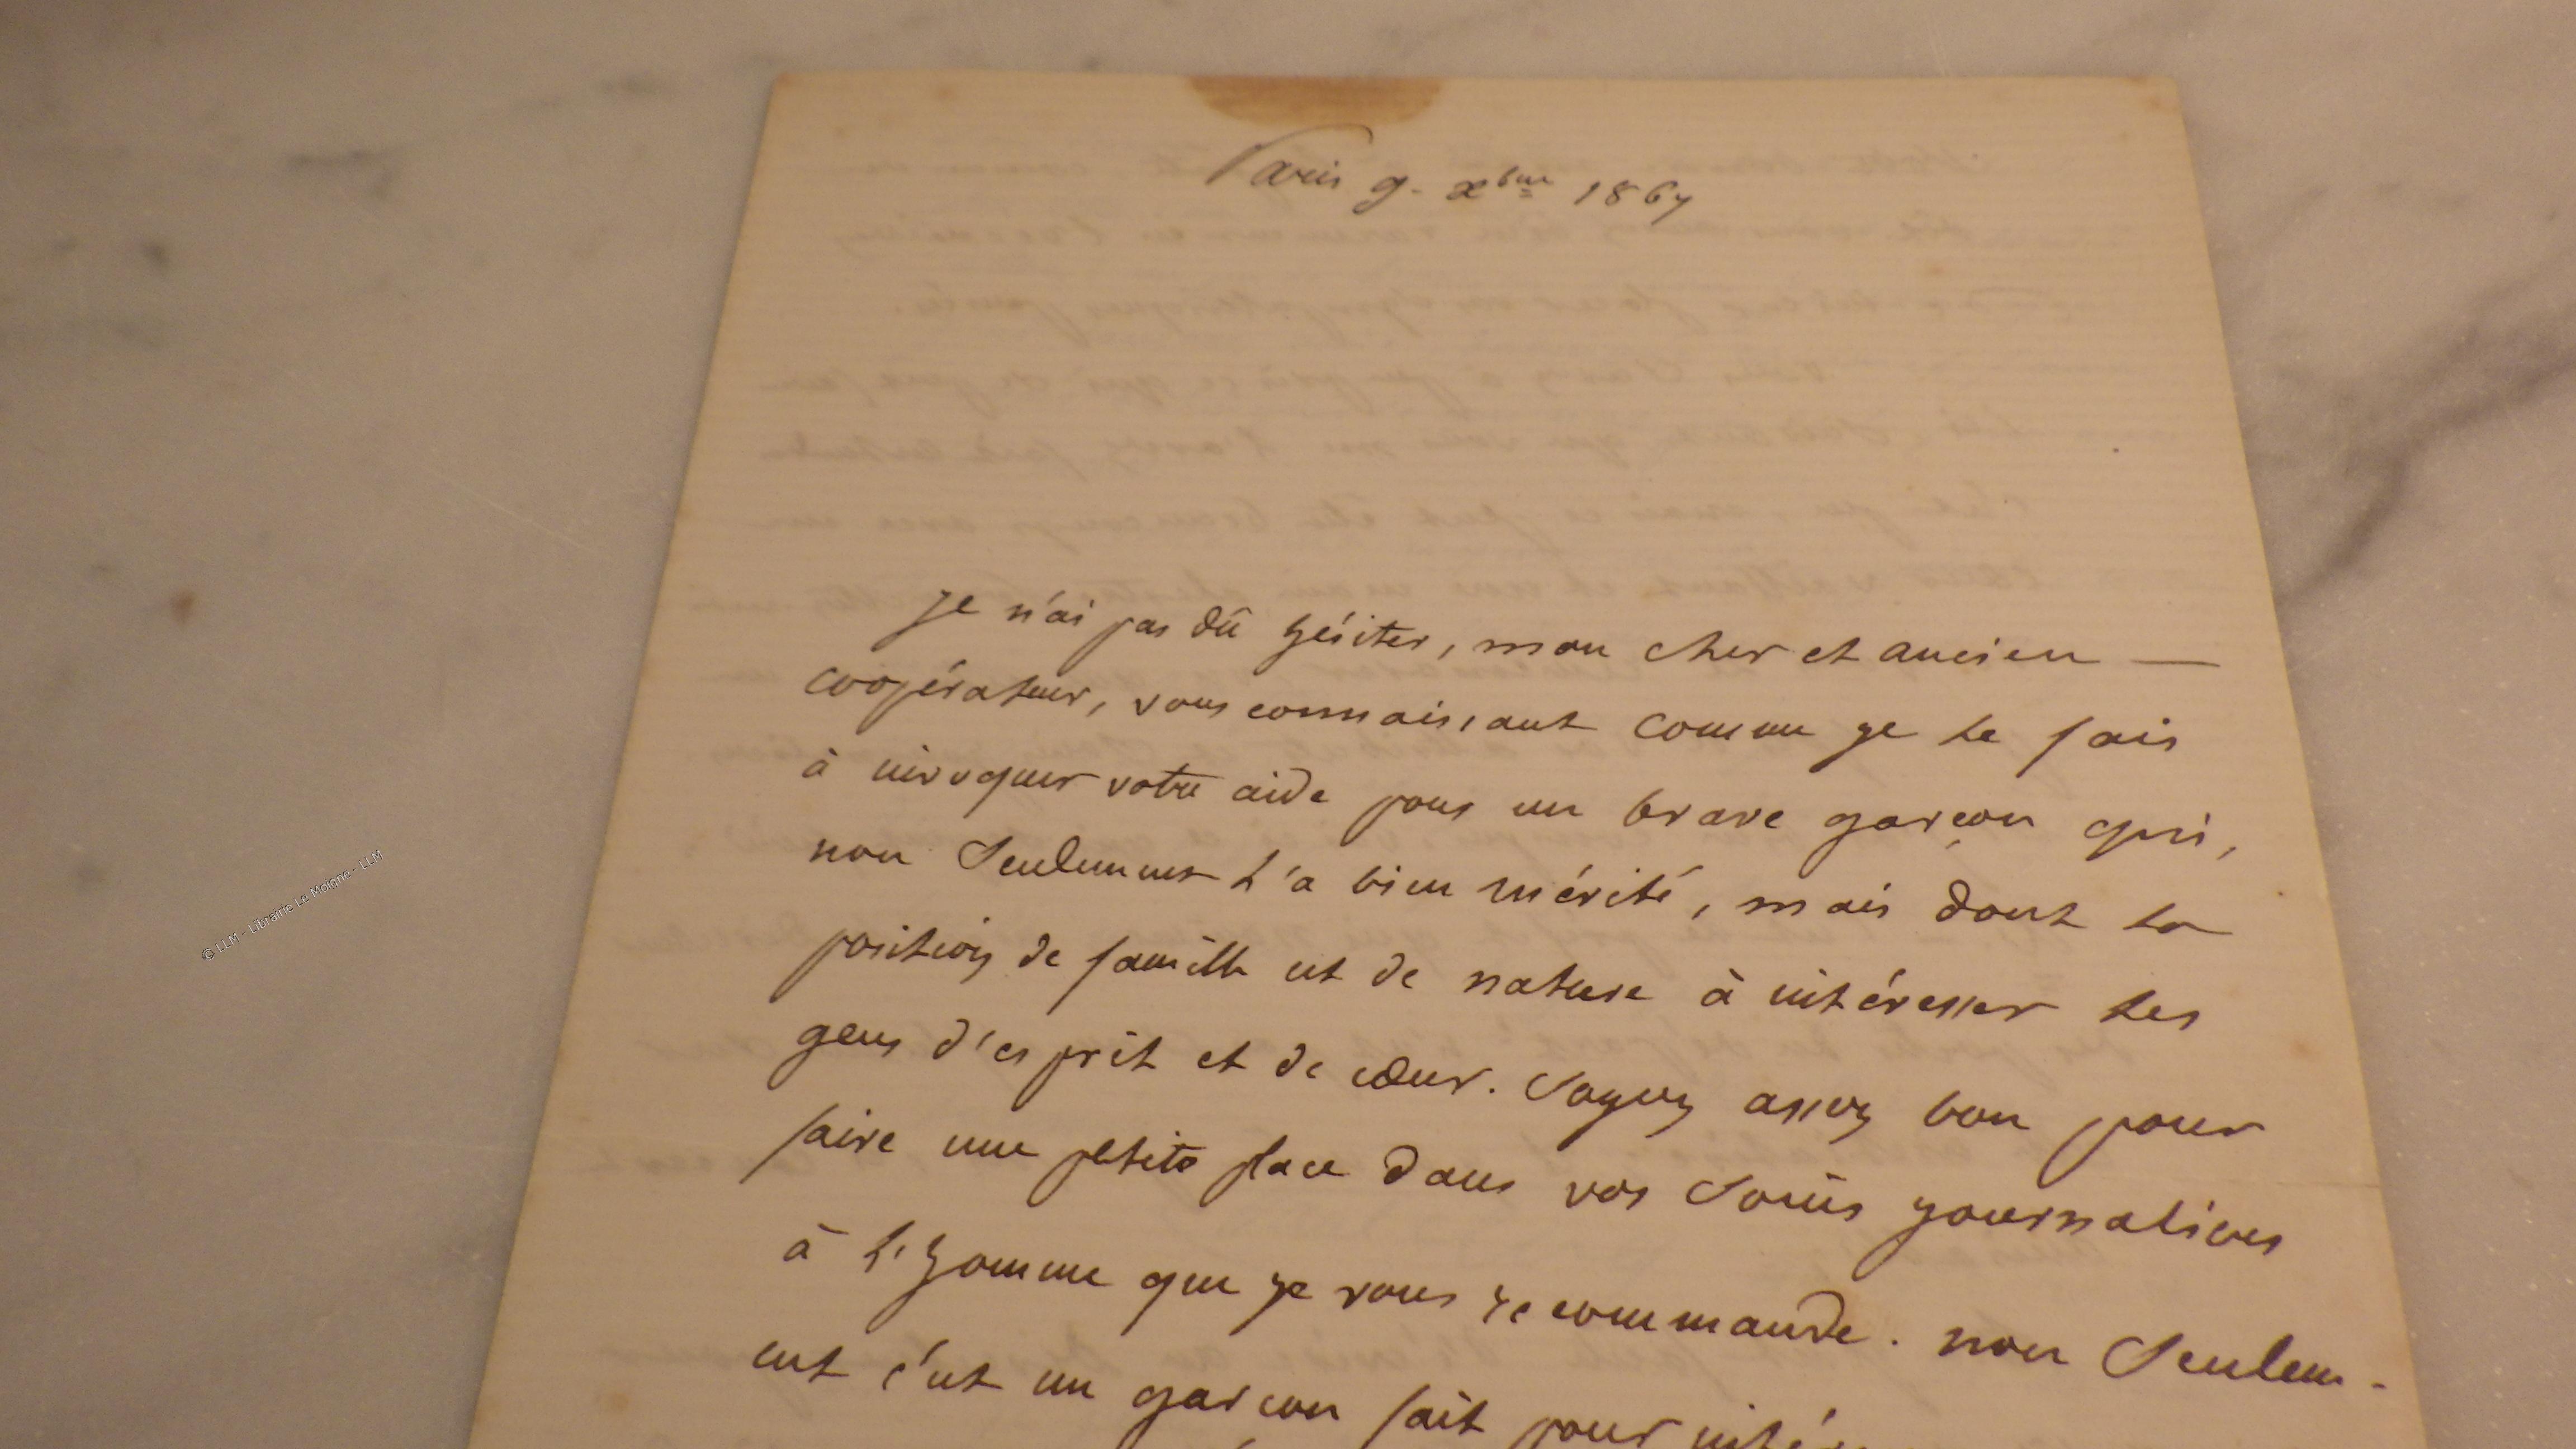 Paris 9. Xbre 1867
je n'ai pas dû hésiter, mon cher et ancien —
coopérateur, vous connaissant comme je le fais
à invoquer votre aide pour un brave garçon qui,
non seulement l'a bien mérité, mais dont la
position de famille est de nature à intéresser les
gens d'esprit et de cœur. Soyez assez bon pour
faire une petite place dans vos soins journaliers
à l'homme que je vous recommande. non seulem-
ent c'est un garçon fait pour
© LLM - Librairie Le Moigne - LLM